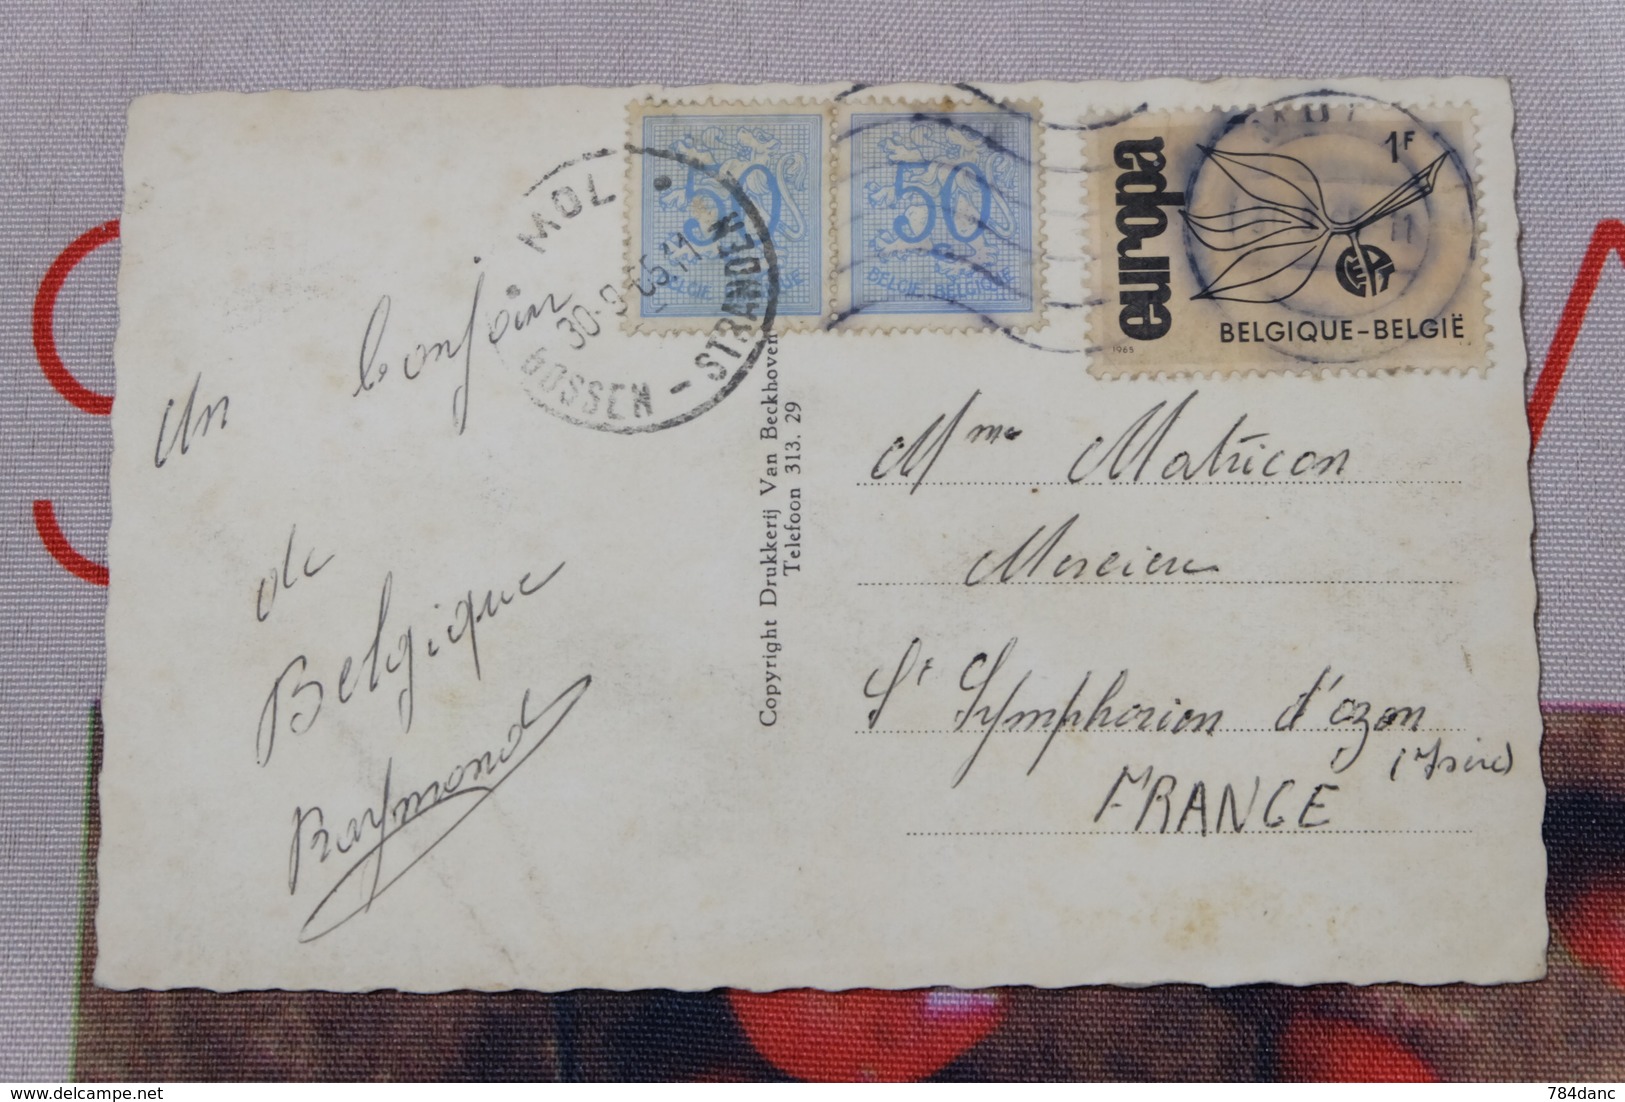 MOL
30-9-65.11
GOSSEN - STRANDEN
50
BELGIE BELGIQUE
50
BELGIE BELGIQUE
europa
1F
CEPT
BELGIQUE-BELGIË
1965
Un bonjour
de
Belgique
Raymond
Copyright Drukkerij Van Beckhoven
Telefoon 313. 29
Mme Matricon
Mercier
St Symphorien d'ozon
(Isère)
FRANCE
https://www.delcampe.net
784danc